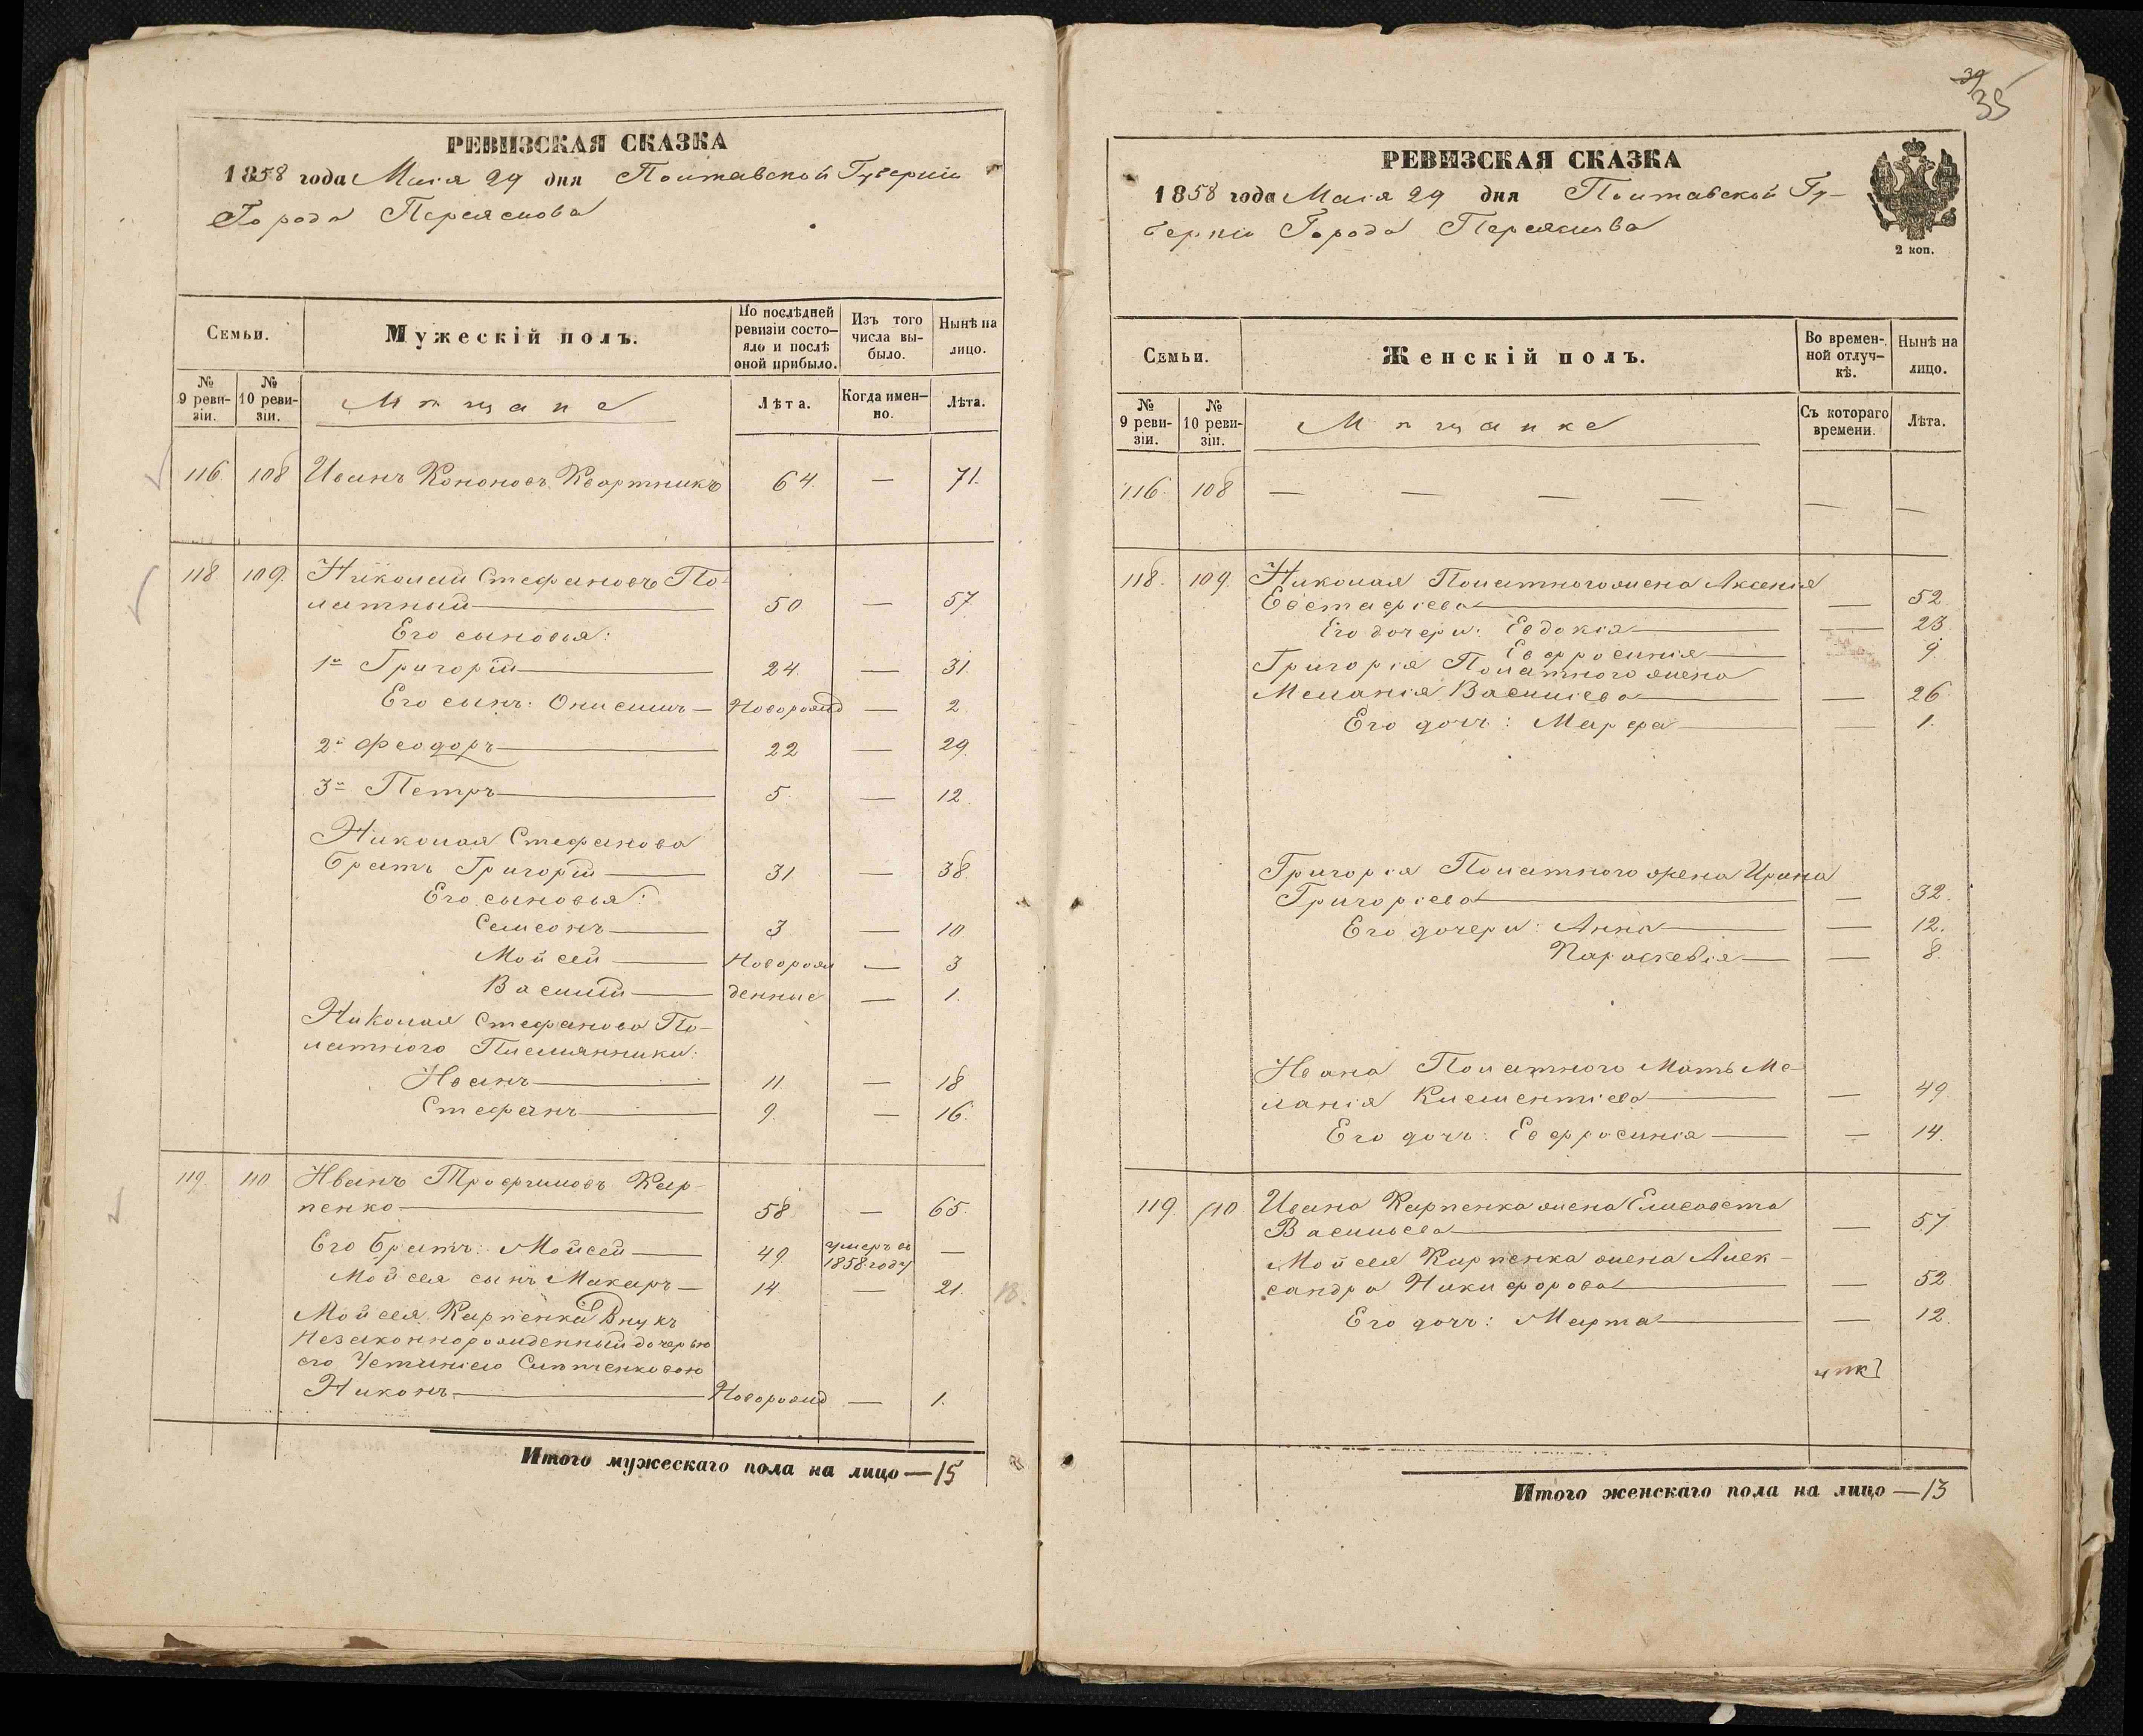 РЕВИЗСКАЯ СКАЗКА
1858 года Маія 29 дня Полтавской Губерніи
Города Переяслова
Семьи.
Мужескій полъ.
По послѣдней ревизіи состояло и послѣ оной прибыло.
Изъ того числа выбыло.
Нынѣ на лицо.
№ 9 ревизіи.
№ 10 ревизіи.
Мѣщане
Лѣта.
Когда именно.
Лѣта.
116. 108 Иванъ Кононовъ Квартникъ 64. — 71.
118 109. Николай Стефановъ По-
латный 50. — 57
Его сыновья:
1й Григорій 24. — 31.
Его сынъ: Онисимъ Новорожд — 2
2й Феодоръ 22 — 29.
3й Петръ 5. — 12.
Николая Стефанова
братъ Григорій 31 — 38.
Его сыновья:
Семеонъ 3 — 10
Мойсей Новорож — 3
Василій денные — 1.
Николая Стефанова По-
латного Племянники:
Иванъ 11. — 18
Стефанъ 9. — 16.
119. 110 Иванъ Трофимовъ Кар-
пенко 58 — 65.
Его братъ: Мойсей 49 умеръ въ 1858 году —
Мойсея сынъ Макаръ 14 — 21.
Мойсея Карпенка Внукъ
Незаконнорожденный дочерью
его Устиніею
Никонъ Новорожд — 1.
Итого мужескаго пола на лицо — 15
35
РЕВИЗСКАЯ СКАЗКА
1858 года Маія 29 дня Полтавской Гу-
берніи Города Переяслова
2 коп.
Семьи.
Женскій полъ.
Во времен-
ной отлуч-
кѣ.
Нынѣ на
лицо.
№ 9 ревизіи.
№ 10 ревизіи.
Мѣщанке
Съ котораго
времени.
Лѣта.
116. 108 — — — — — —
118. 109. Николая Полатного жена Аксенія
Евстафіева — 52
Его дочери: Евдокія — 23
Евфросинія 9.
Григорія Полатного жена
Меланія Василіева — 26
Его дочь: Марфа — 1.
Григорія Полатного жена Ирина
Григоріева — 32.
Его дочери: Анна — 12.
Параскевія — 8.
Ивана Полатного Мать Ме-
ланія Климентіева — 49
Его дочь: Евфросинія — 14.
119. 110 Ивана Карпенка жена Елисавета
Васильева — 57
Мойсея Карпенка жена Алек-
сандра Никифорова — 52
Его дочь: Марта — 12
Итого женскаго пола на лицо — 13